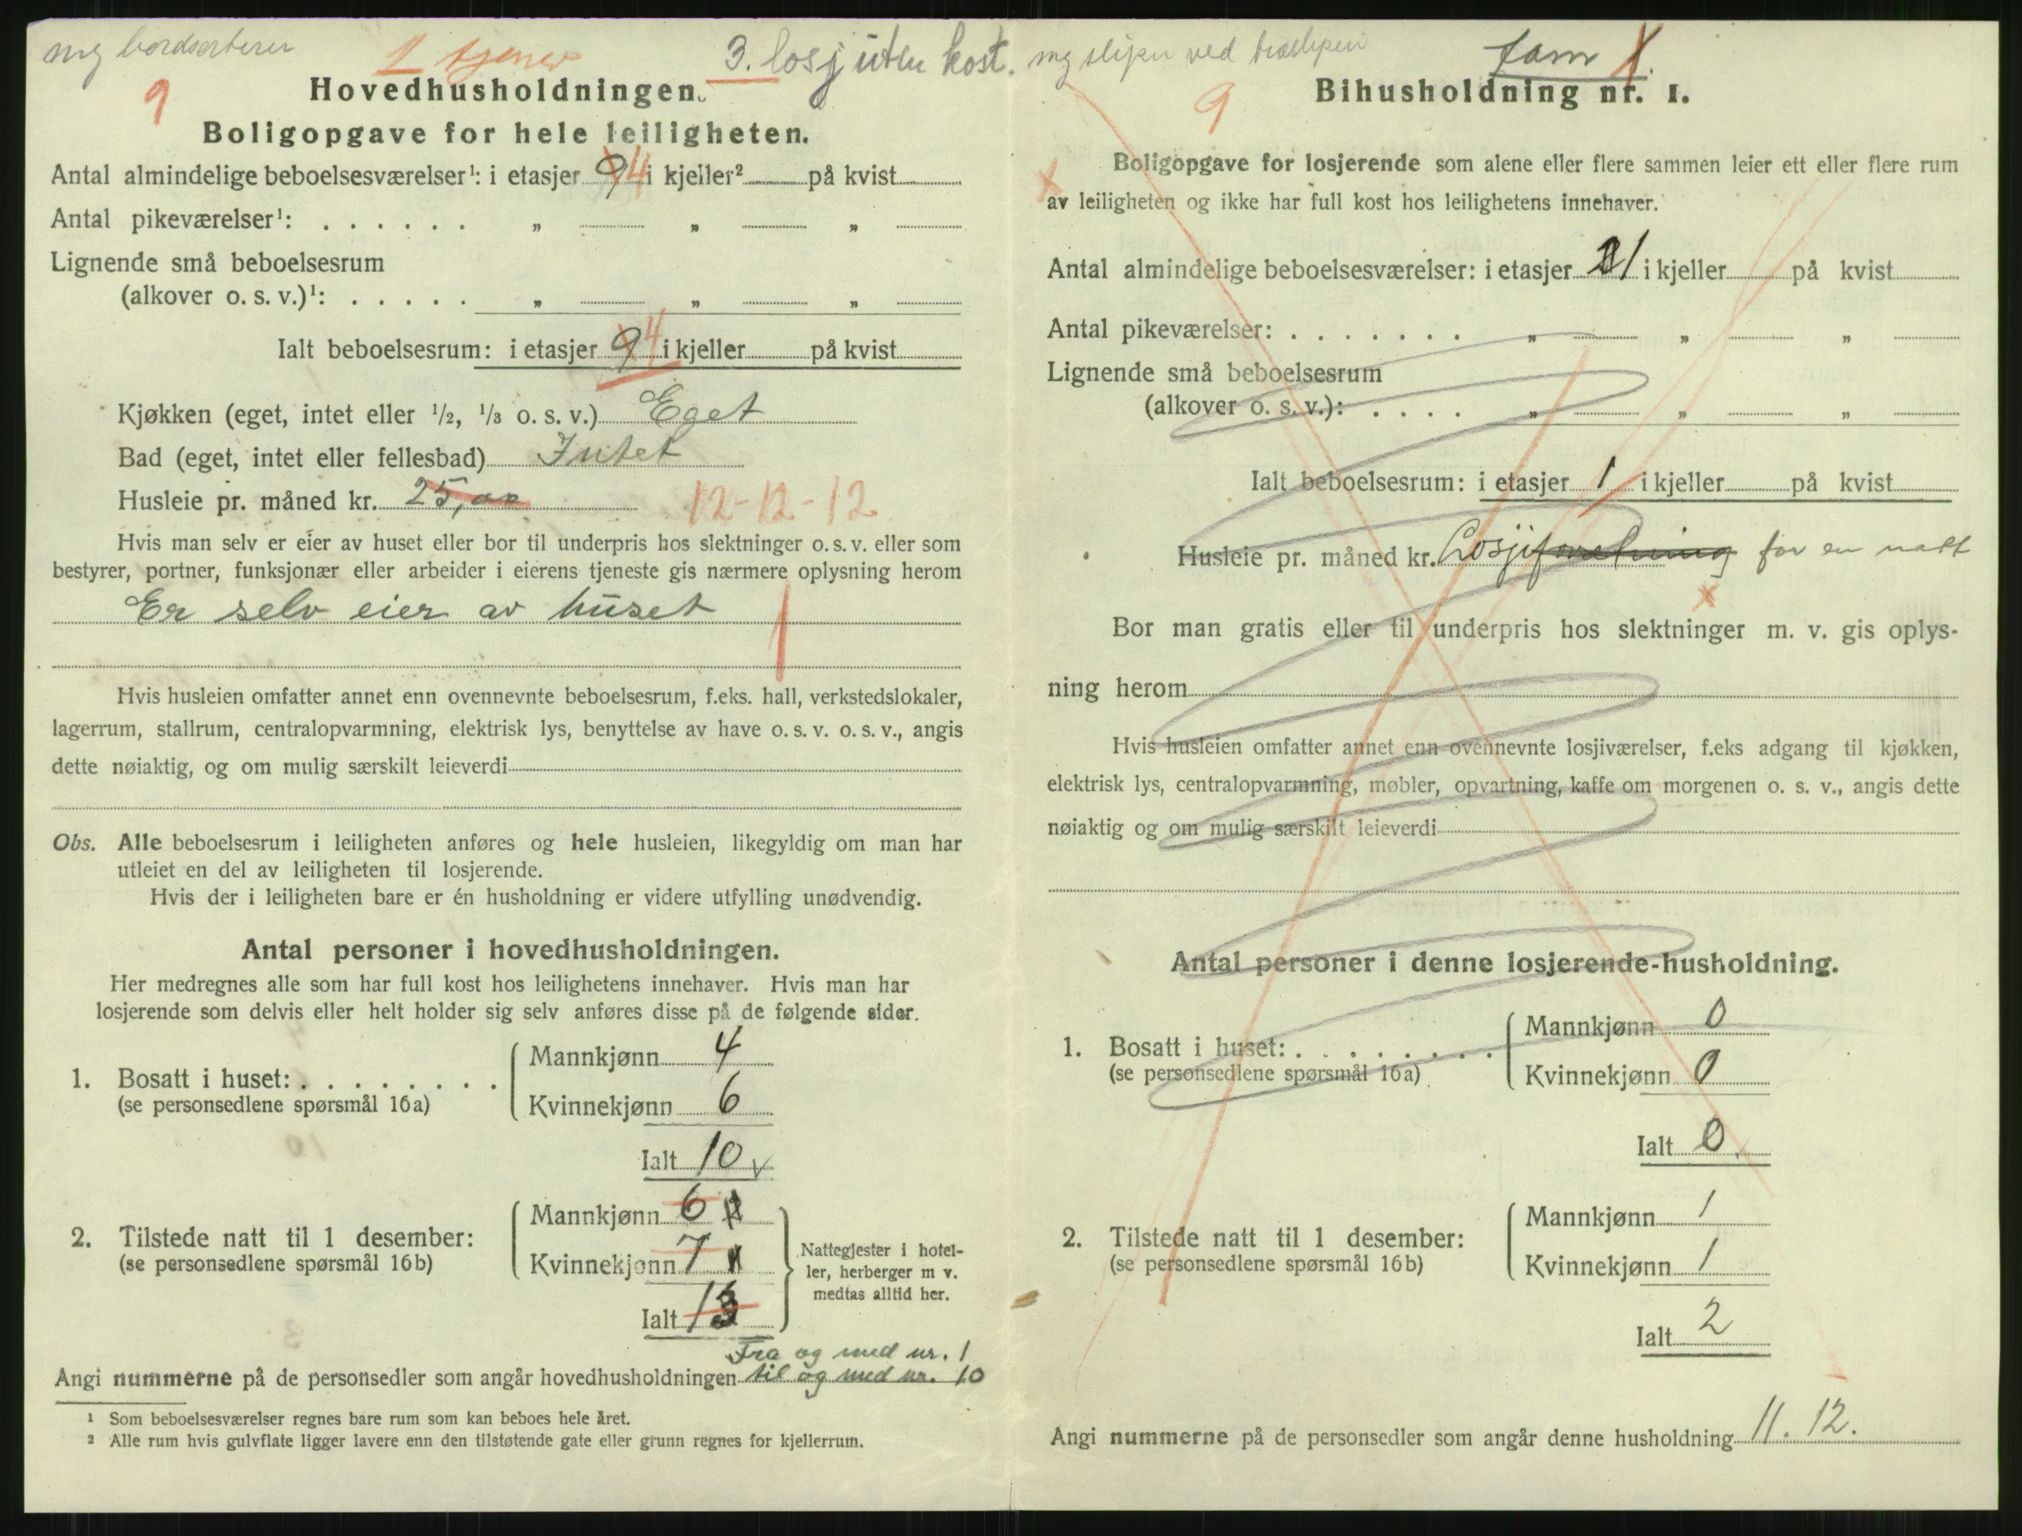 1 tjener
3. losj uten kost.
9
Hovedhusholdningen.
Boligopgave for hele leiligheten.
Antal almindelige beboelsesværelser¹: i etasjer 9 4 i kjeller² på kvist
Antal pikeværelser¹: . . . . . . „ „ „
Lignende små beboelsesrum
(alkover o. s. v.)¹: . . . . . „ „ „
Ialt beboelsesrum: i etasjer 9 4 i kjeller på kvist
Kjøkken (eget, intet eller ½, ⅓ o. s. v.) Eget
Bad (eget, intet eller fellesbad) Intet
Husleie pr. måned kr. 25,00 12-12-12
Hvis man selv er eier av huset eller bor til underpris hos slektninger o. s. v. eller som
bestyrer, portner, funksjonær eller arbeider i eierens tjeneste gis nærmere oplysning herom
Er selv eier av huset 1
Hvis husleien omfatter annet enn ovennevnte beboelsesrum, f.eks. hall, verkstedslokaler,
lagerrum, stallrum, centralopvarmning, elektrisk lys, benyttelse av have o. s. v. o. s. v., angis
dette nøiaktig, og om mulig særskilt leieverdi
Obs. Alle beboelsesrum i leiligheten anføres og hele husleien, likegyldig om man har
utleiet en del av leiligheten til losjerende.
Hvis der i leiligheten bare er én husholdning er videre utfylling unødvendig.
Antal personer i hovedhusholdningen.
Her medregnes alle som har full kost hos leilighetens innehaver. Hvis man har
losjerende som delvis eller helt holder sig selv anføres disse på de følgende sider.
1. Bosatt i huset: . . . . . . . .
(se personsedlene spørsmål 16a)
Mannkjønn 4
Kvinnekjønn 6
Ialt 10
2. Tilstede natt til 1 desember:
(se personsedlene spørsmål 16b)
Mannkjønn 6
Kvinnekjønn 7
Ialt 13
Nattegjester i hotel-
ler, herberger m v.
medtas alltid her.
Fra og med nr. 1
Angi nummerne på de personsedler som angår hovedhusholdningen til og med nr. 10
¹ Som beboelsesværelser regnes bare rum som kan beboes hele året.
² Alle rum hvis gulvflate ligger lavere enn den tilstøtende gate eller grunn regnes for kjellerrum.
ved
9
Bihusholdning nr. 1.
Boligopgave for losjerende som alene eller flere sammen leier ett eller flere rum
av leiligheten og ikke har full kost hos leilighetens innehaver.
Antal almindelige beboelsesværelser: i etasjer 2 1 i kjeller på kvist
Antal pikeværelser: . . . . . . . „ „ „
Lignende små beboelsesrum
(alkover o. s. v.): . . . . „ „ „
Ialt beboelsesrum: i etasjer 1 i kjeller på kvist
Husleie pr. måned kr. Losjiforretning for en natt
Bor man gratis eller til underpris hos slektninger m. v. gis oplys-
ning herom
Hvis husleien omfatter annet enn ovennevnte losjiværelser, f.eks adgang til kjøkken,
elektrisk lys, centralopvarmning, møbler, opvartning, kaffe om morgenen o. s. v., angis dette
nøiaktig og om mulig særskilt leieverdi
Antal personer i denne losjerende-husholdning.
1. Bosatt i huset: . . . . . . . .
(se personsedlene spørsmål 16a)
Mannkjønn 0
Kvinnekjønn 0
Ialt 0
2. Tilstede natt til 1 desember:
(se personsedlene spørsmål 16b)
Mannkjønn 1
Kvinnekjønn 1
Ialt 2
Angi nummerne på de personsedler som angår denne husholdning 11. 12.